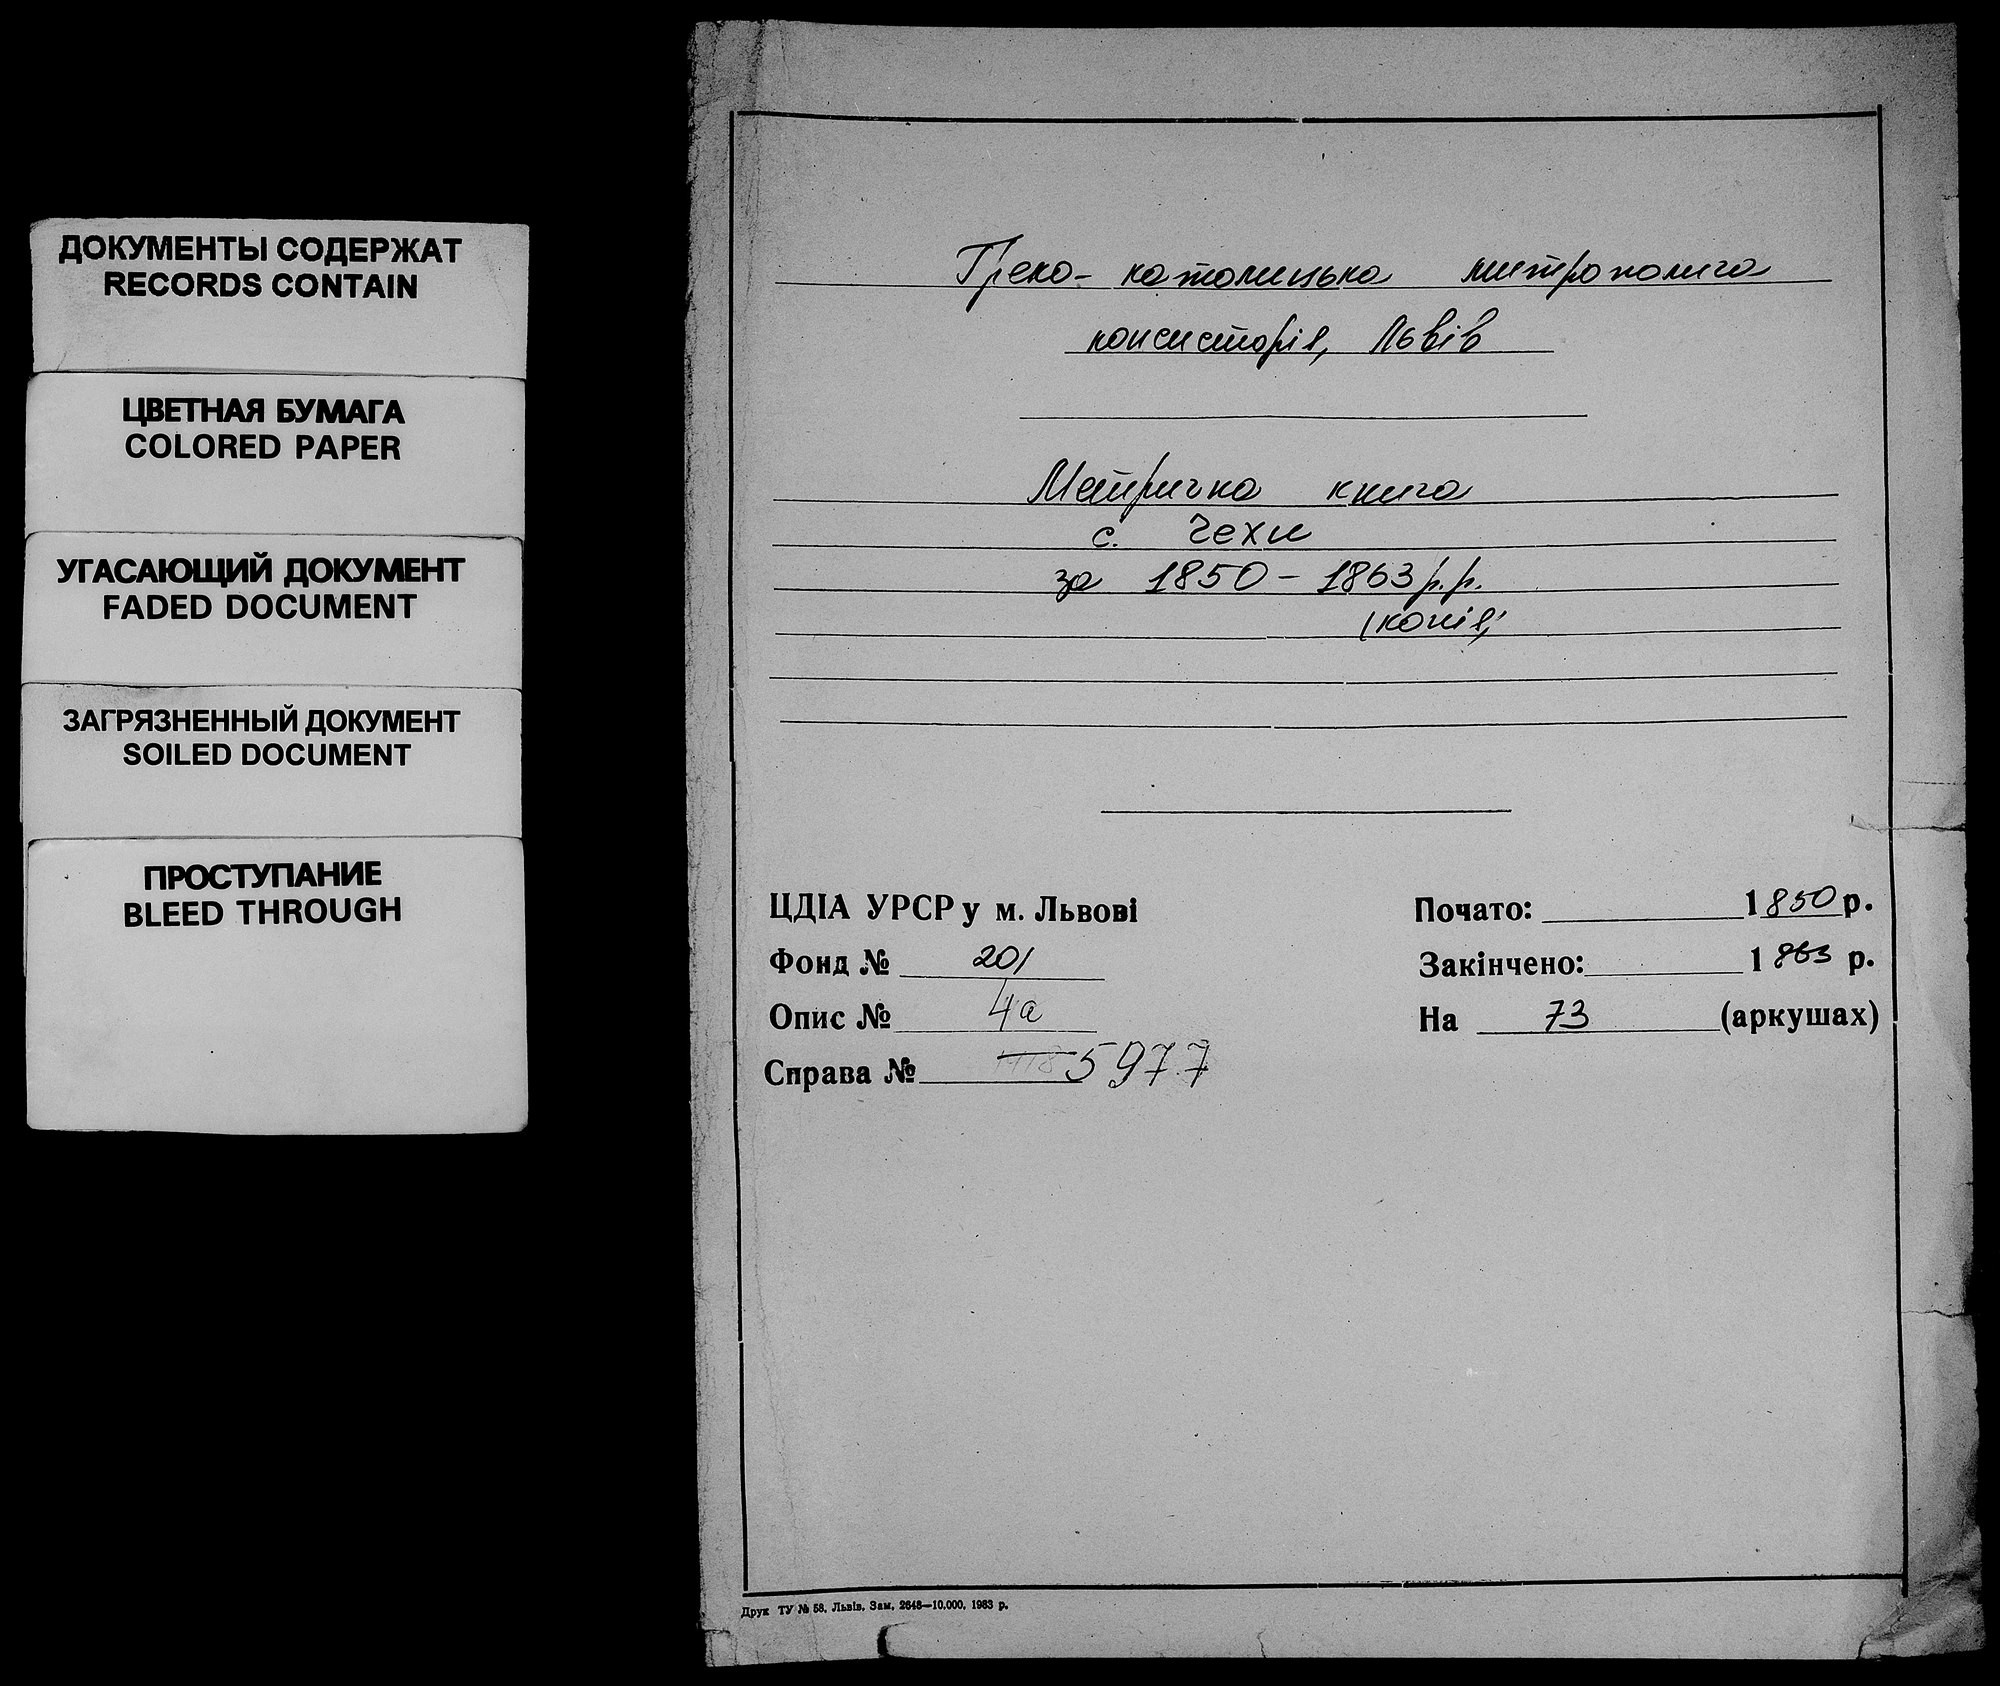 ДОКУМЕНТЫ СОДЕРЖАТ
RECORDS CONTAIN
ЦВЕТНАЯ БУМАГА
COLORED PAPER
УГАСАЮЩИЙ ДОКУМЕНТ
FADED DOCUMENT
ЗАГРЯЗНЕННЫЙ ДОКУМЕНТ
SOILED DOCUMENT
ПРОСТУПАНИЕ
BLEED THROUGH
Греко-католицька митрополича
консисторія, Львів
Метрична книга
с. Чехи
за 1850-1863 р.р.
(копія)
ЦДІА УРСР у м. Львові
Фонд № 201
Опис № 4а
Справа № 5977
Почато: 1850 р.
Закінчено: 1863 р.
На 73 (аркушах)
Друк ТУ № 58. Львів. Зам. 2648—10.000. 1983 р.